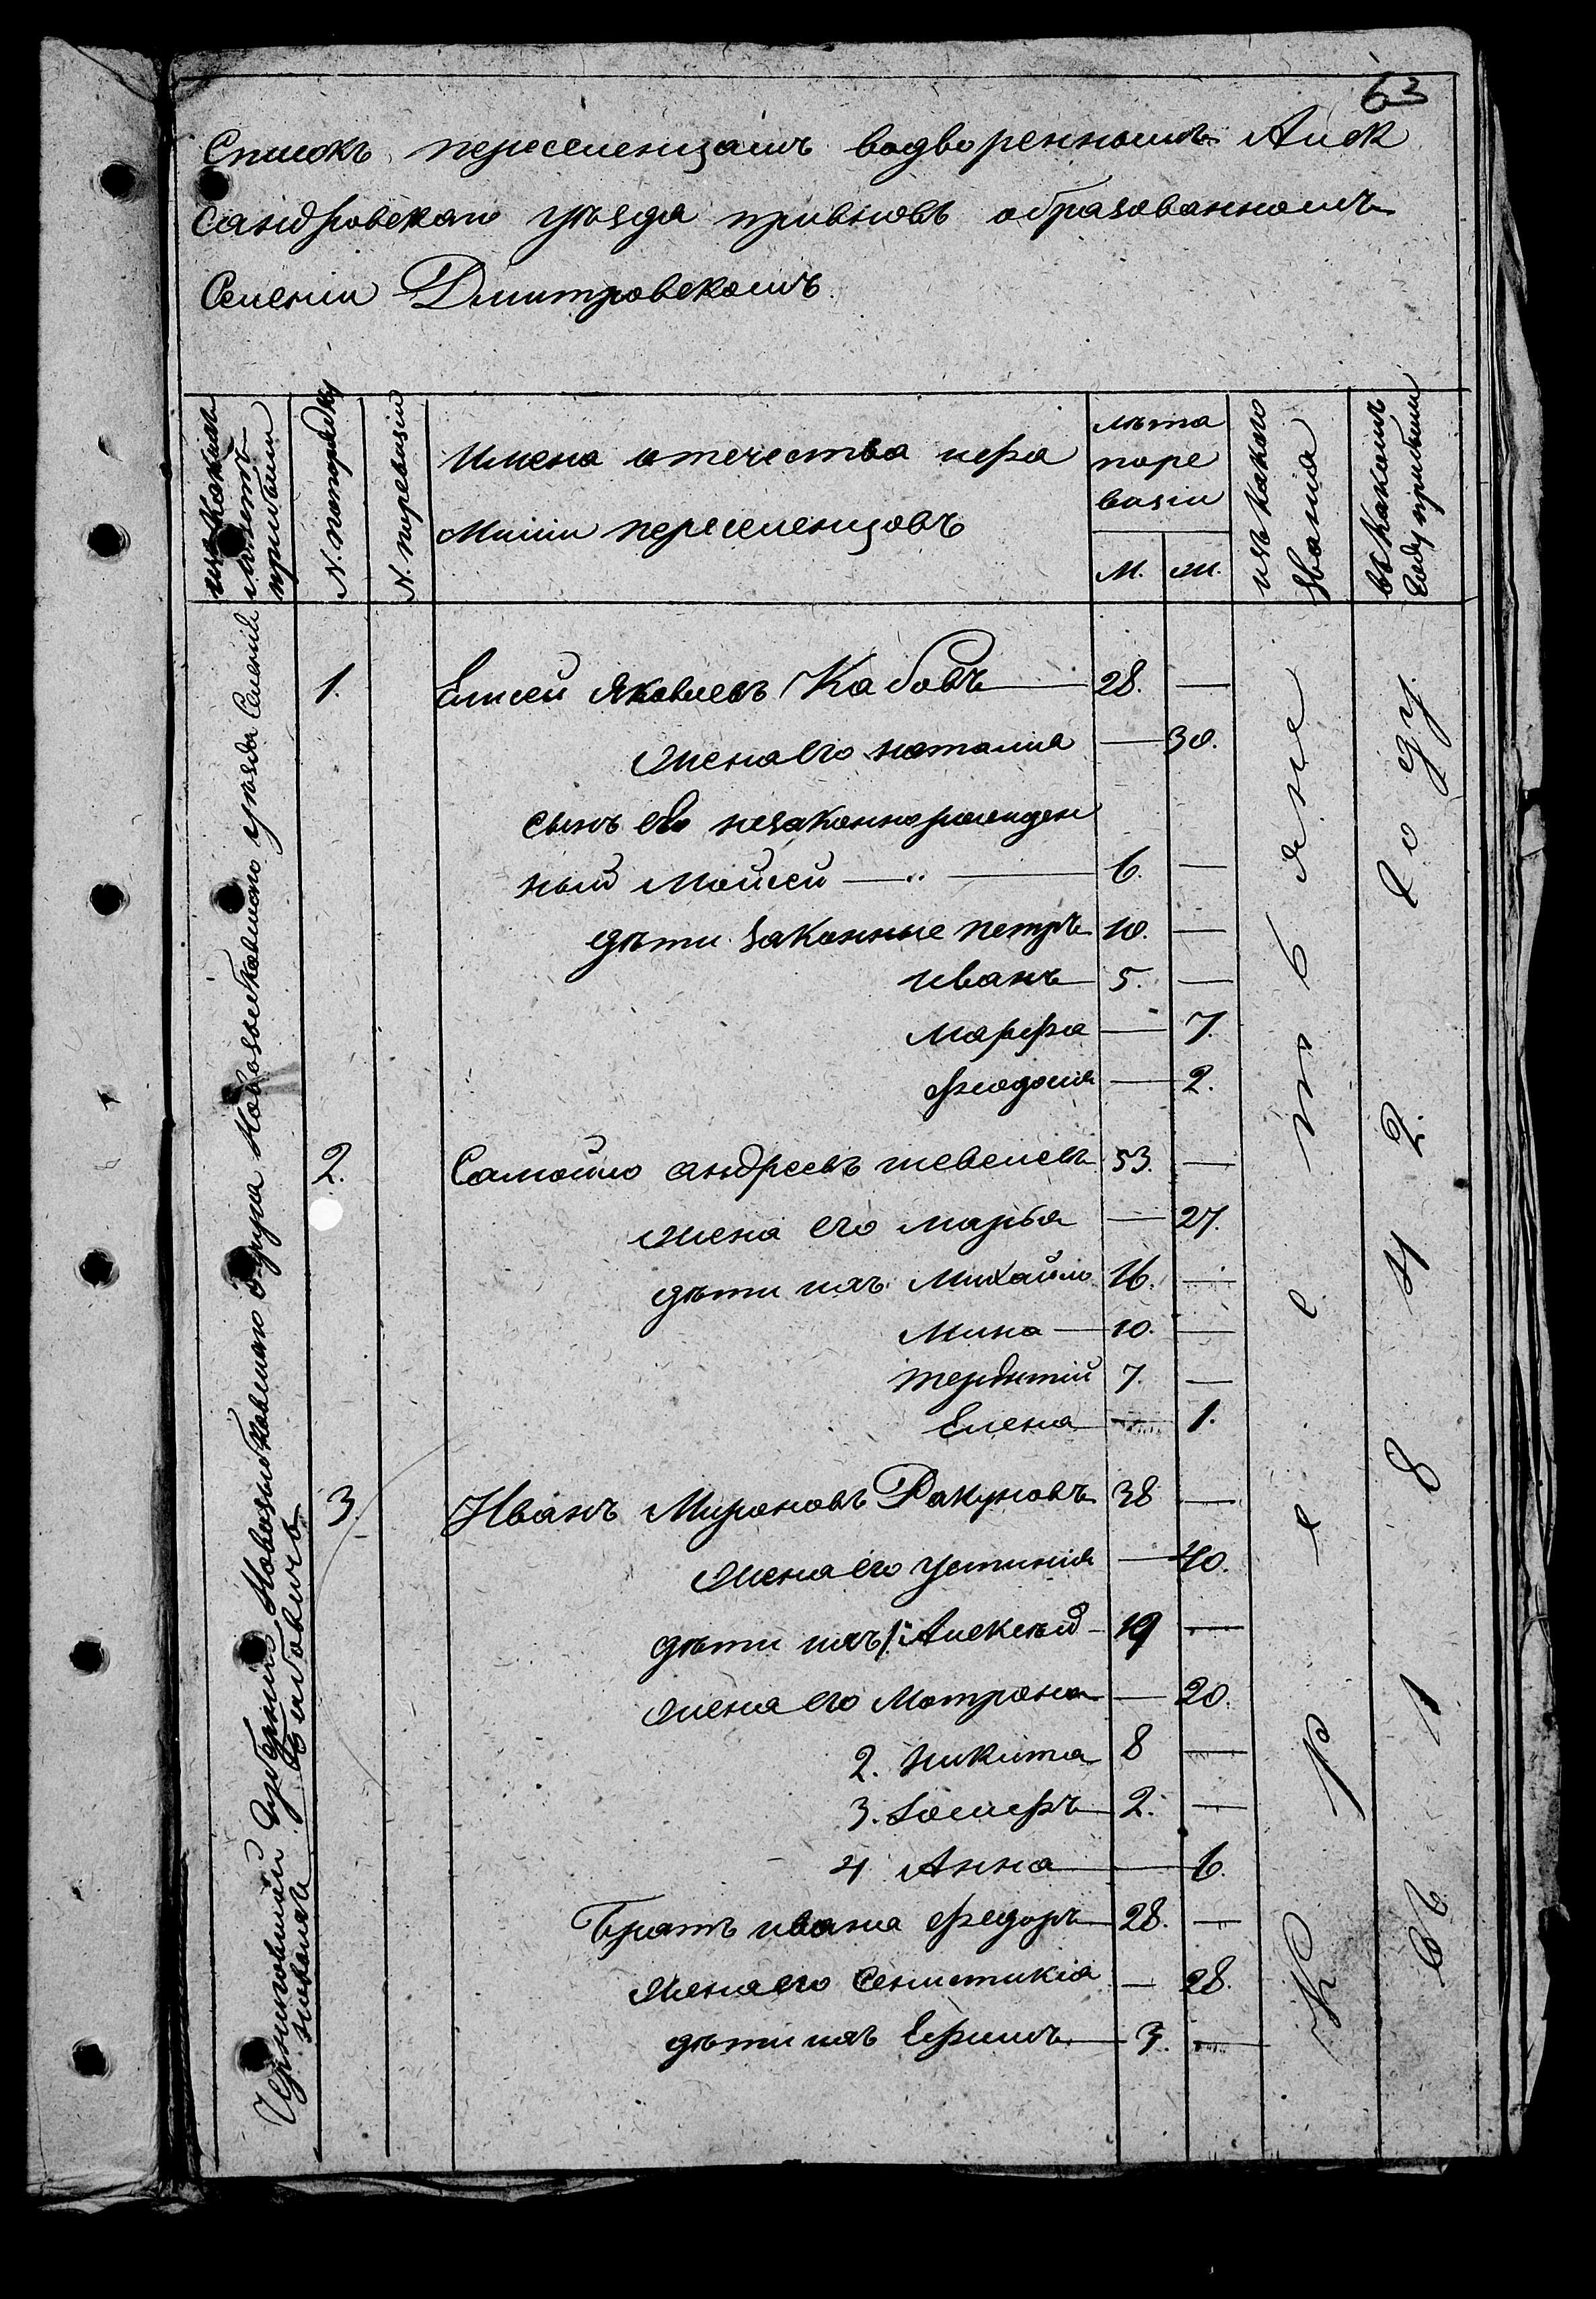 63
Списокъ переселенцамъ водвореннымъ Алек
сандровскаго уѣзда привновь образованномъ
Селеніи Дмитровскомъ
изъ какихъ
мѣстъ
прибыли
N. попорядку
N. поревизіи
Имена отечества ифа
миліи переселенцовъ
лѣта
поре
визіи
М.
ж.
изъ какого
званія
въ какомъ
году прибыли
1. Елисей Яковлевъ Кабовъ 28. —
жена его наталия — 30.
сынъ его незаконнорожден
ный Мойсей — 6. —
дѣти законные петръ 10. —
иванъ 5. —
марфа — 7.
феодосия — 2.
2. Самойло андреевъ шевелевъ 53. —
жена его марья — 27.
дѣти ихъ Михайло 16. —
Мина 10. —
терентий 7. —
Елена — 1.
3. Иванъ Мироновъ Ракуновъ 38 —
жена его устиния — 40.
дѣти ихъ 1. Алексѣй 19 —
жена его Мотрона — 20.
2. никита 8 —
3. Iосифъ 2. —
4 Анна — 6.
Братъ ивана федоръ 28. —
жена его — 28.
дѣти ихъ Ефимъ 3. —
Черниговской Губерніи Новозыбковскаго округа Новозыбковскаго уѣзда Селенія
крестьяне
въ 1842. году